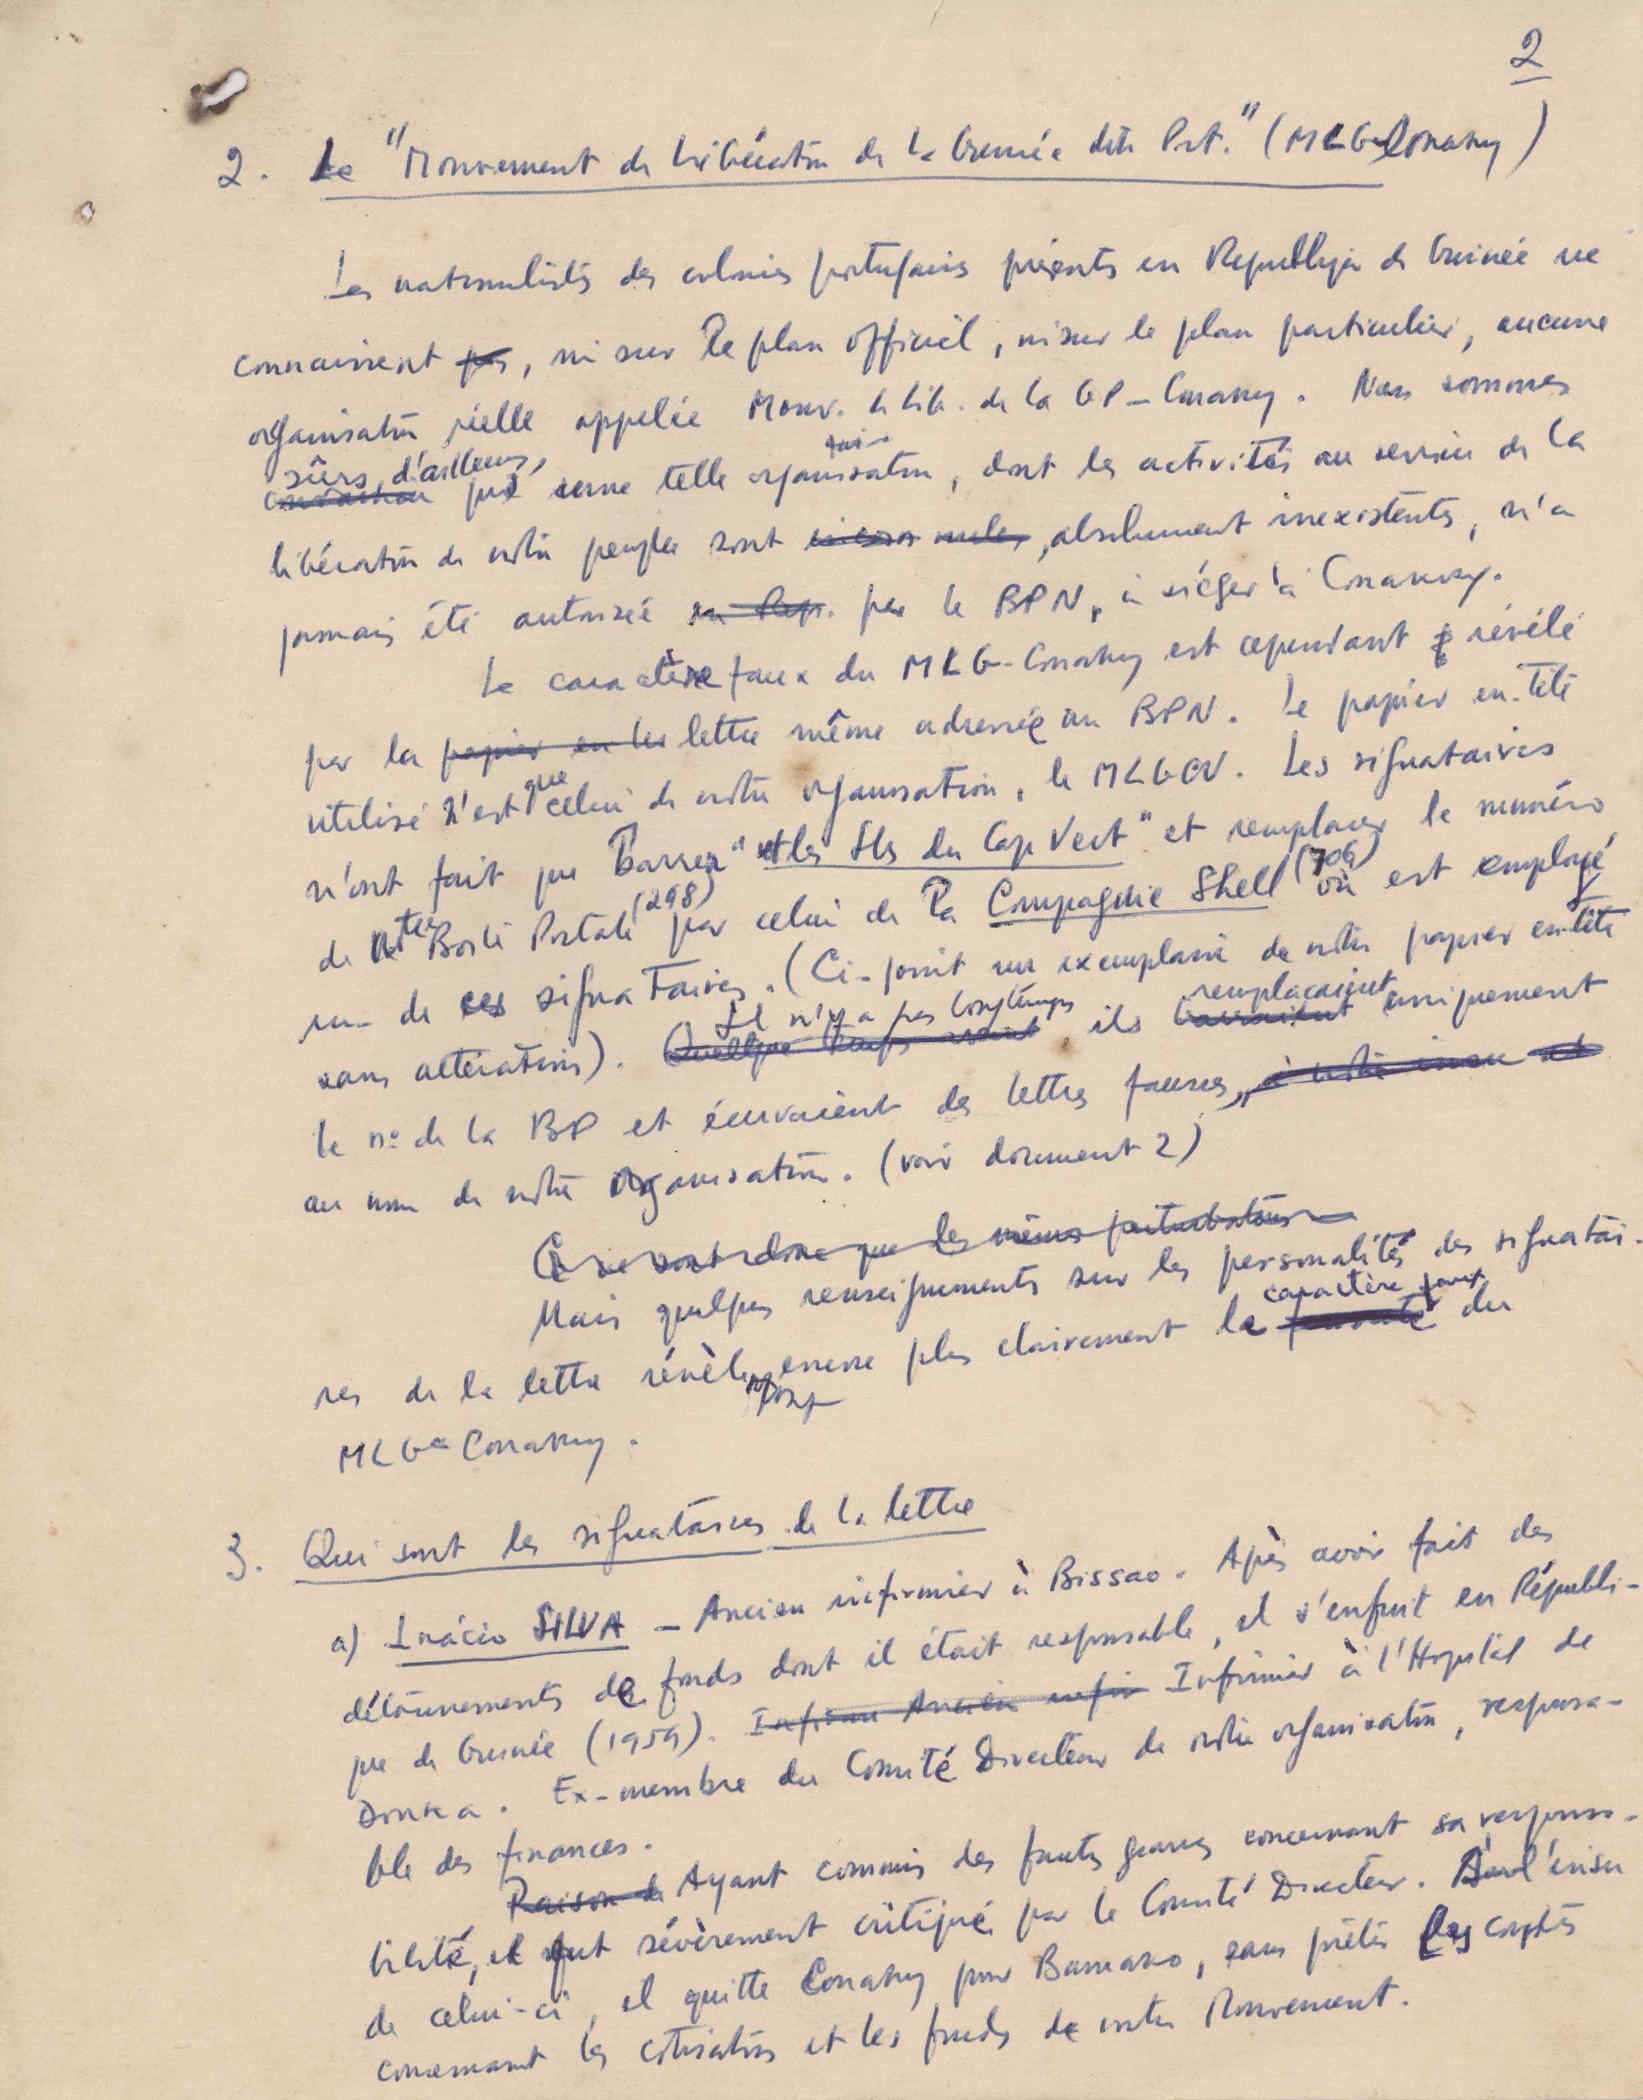 2
2. Le "Mouvement de Libération de la Guinée dite Port." (MLG-Conakry)
Les nationalistes des colonies portugaises présents en République de Guinée ne
connaissent pas, ni sur le plan officiel, ni sur le plan particulier, aucune
organisation réelle appelée Mouv. de Lib. de la GP - Conakry. Nous sommes
sûrs, d'ailleurs,
que une telle organisation, dont les activités au service de la
libération de notre peuple sont nulles, absolument inexistentes, n'a
jamais été autorisée en Rep. par le BPN, à siéger à Conakry.
Le caractère faux du MLG-Conakry est cependant révélé
par la papier en tes lettre même adressée au BPN. Le papier en-tête
utilisé n'est que celui de notre organisation, le MLGCV. Les signataires
n'ont fait que Barrer "et les Iles du Cap Vert" et remplacer le numéro
de notre Boîte Postale (298) par celui de la Compagnie Shell (706) où est employé
un de ces signataires. (Ci-joint un exemplaire de notre papier en-tête
sans altérations). Quelque temps avant Il n'y a pas longtemps, ils remplaçaient uniquement
le nº de la BP et écrivaient des lettres fausses, à notre insu et
au nom de notre Organisation. (voir document 2)
Ce ne sont donc que les mêmes perturbateurs
Mais quelques renseignements sur les personalités des signatai-
res de la lettre révèlent encore plus clairement le caractère faux du
MLG-Conakry.
3. Qui sont les signataires de la lettre
a) Inácio SILVA - Ancien infirmier à Bissao. Après avoir fait des
détournements de fonds dont il était responsable, il s'enfuit en Républi-
que de Guinée (1959). Ancien Infirmier à l'Hopital de
Donka. Ex-membre du Comité Directeur de notre organisation, responsa-
ble des finances.
Raison de Ayant commis des fautes graves concernant sa responsa-
bilité, il fut sévèrement critiqué par le Comité Directeur. A l'insu
de celui-ci, il quitte Conakry pour Bamako, sans prêter les comptes
concernant les cotisations et les fonds de notre Mouvement.